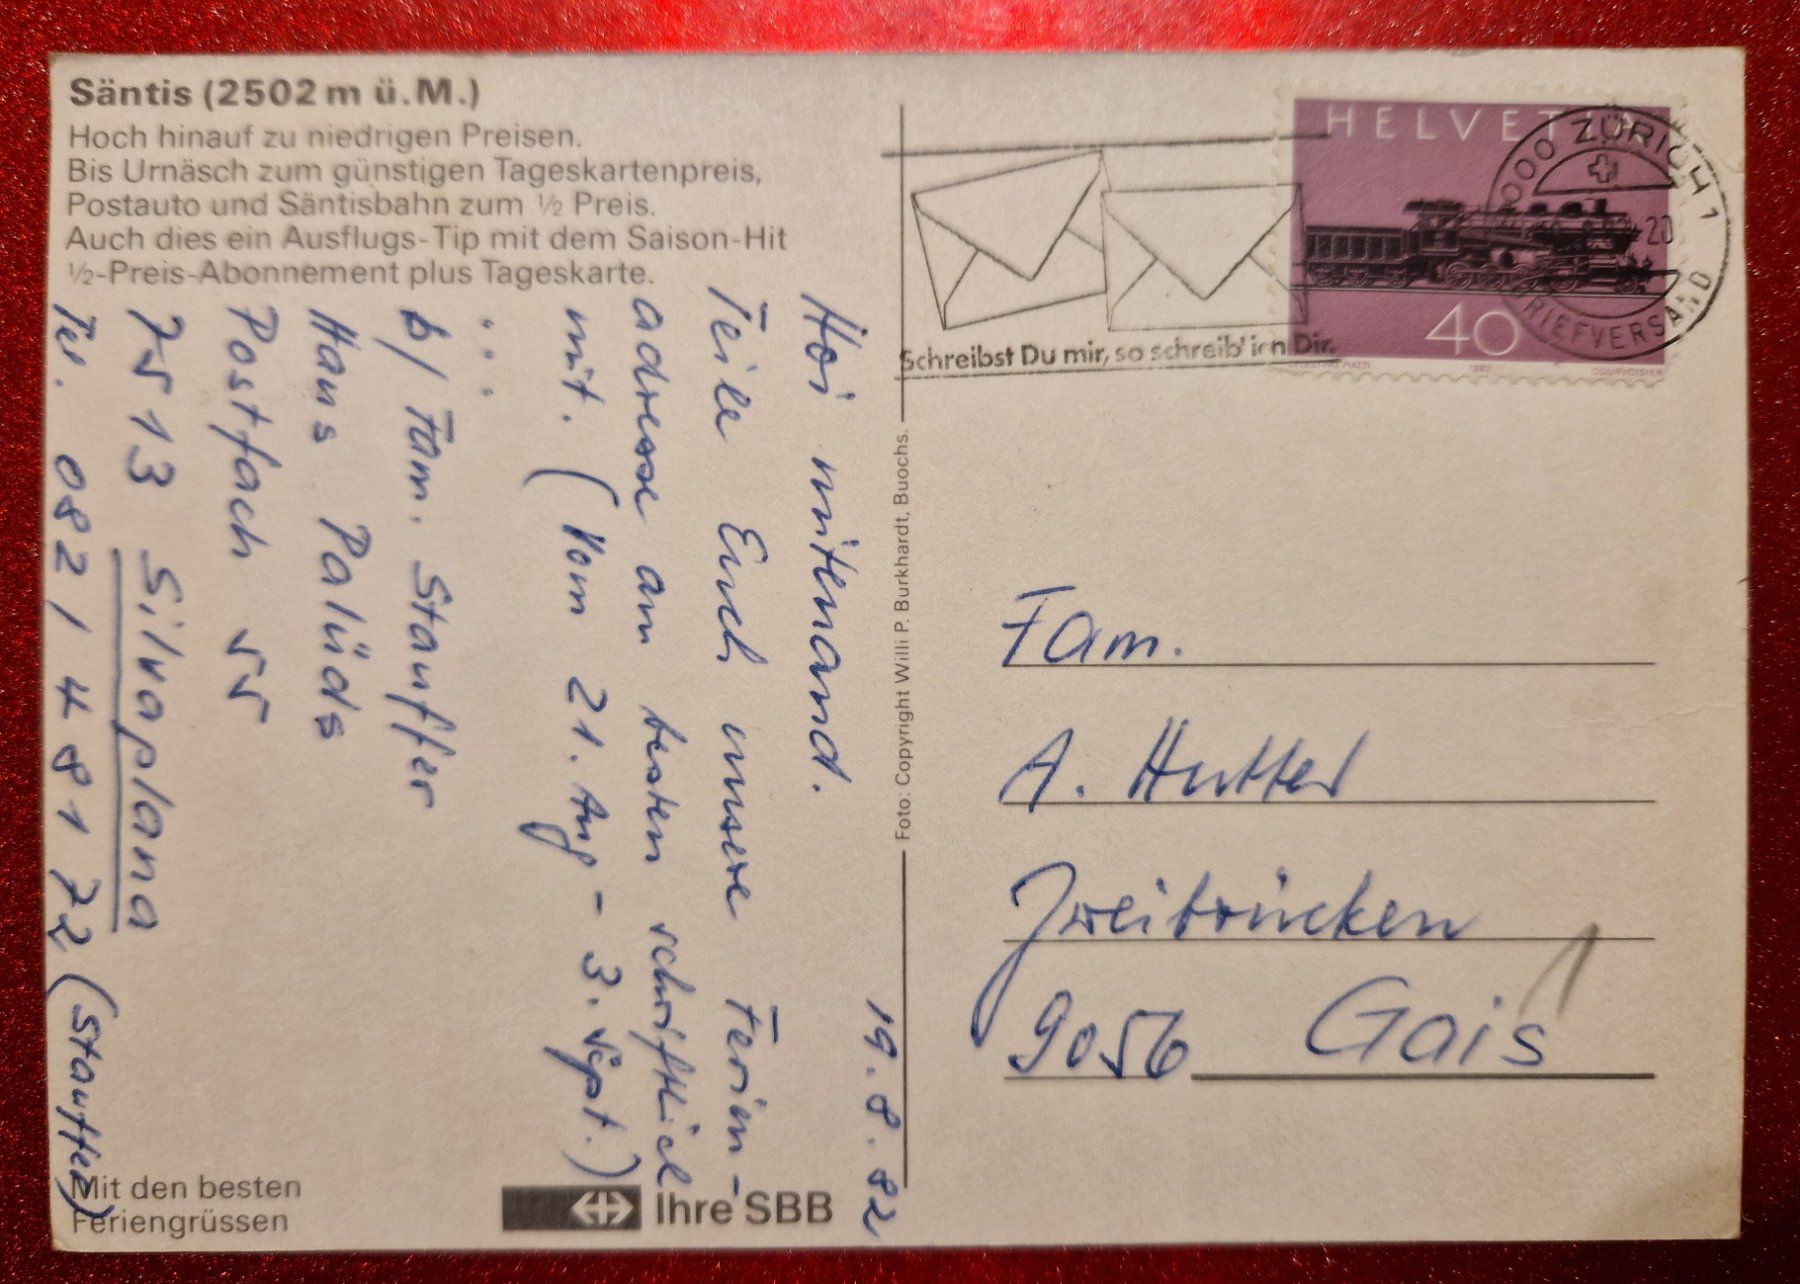 Säntis (2502 m ü. M.)
Hoch hinauf zu niedrigen Preisen.
Bis Urnäsch zum günstigen Tageskartenpreis,
Postauto und Säntisbahn zum ½ Preis.
Auch dies ein Ausflugs-Tip mit dem Saison-Hit
½-Preis-Abonnement plus Tageskarte.
19. 8. 82
Hoi mitenand.
Teile Euch unsere Ferien-
adresse am besten schriftlich
mit. (Vom 21. Aug - 3. Sept.)
:
b/ Fam. Stauffer
Haus Palüds
Postfach 55
7513 Silvaplana
Tel. 082 / 4 81 72 (Stauffer)
Mit den besten
Feriengrüssen
Ihre SBB
Foto: Copyright Willi P. Burkhardt, Buochs.
Schreibst Du mir, so schreib' ich Dir.
HELVETIA
40
1982
COURVOISIER
ZÜRICH 1
20
BRIEFVERSAND
Fam.
A. Hutter
Zweibrücken
9056 Gais